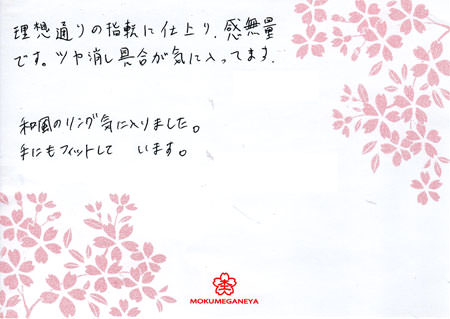 理想通りの指輪に仕上り、感無量
です。ツヤ消し具合が気に入ってます.
和風のリング気に入りました。
手にもフィットして います。
MOKUMEGANEYA